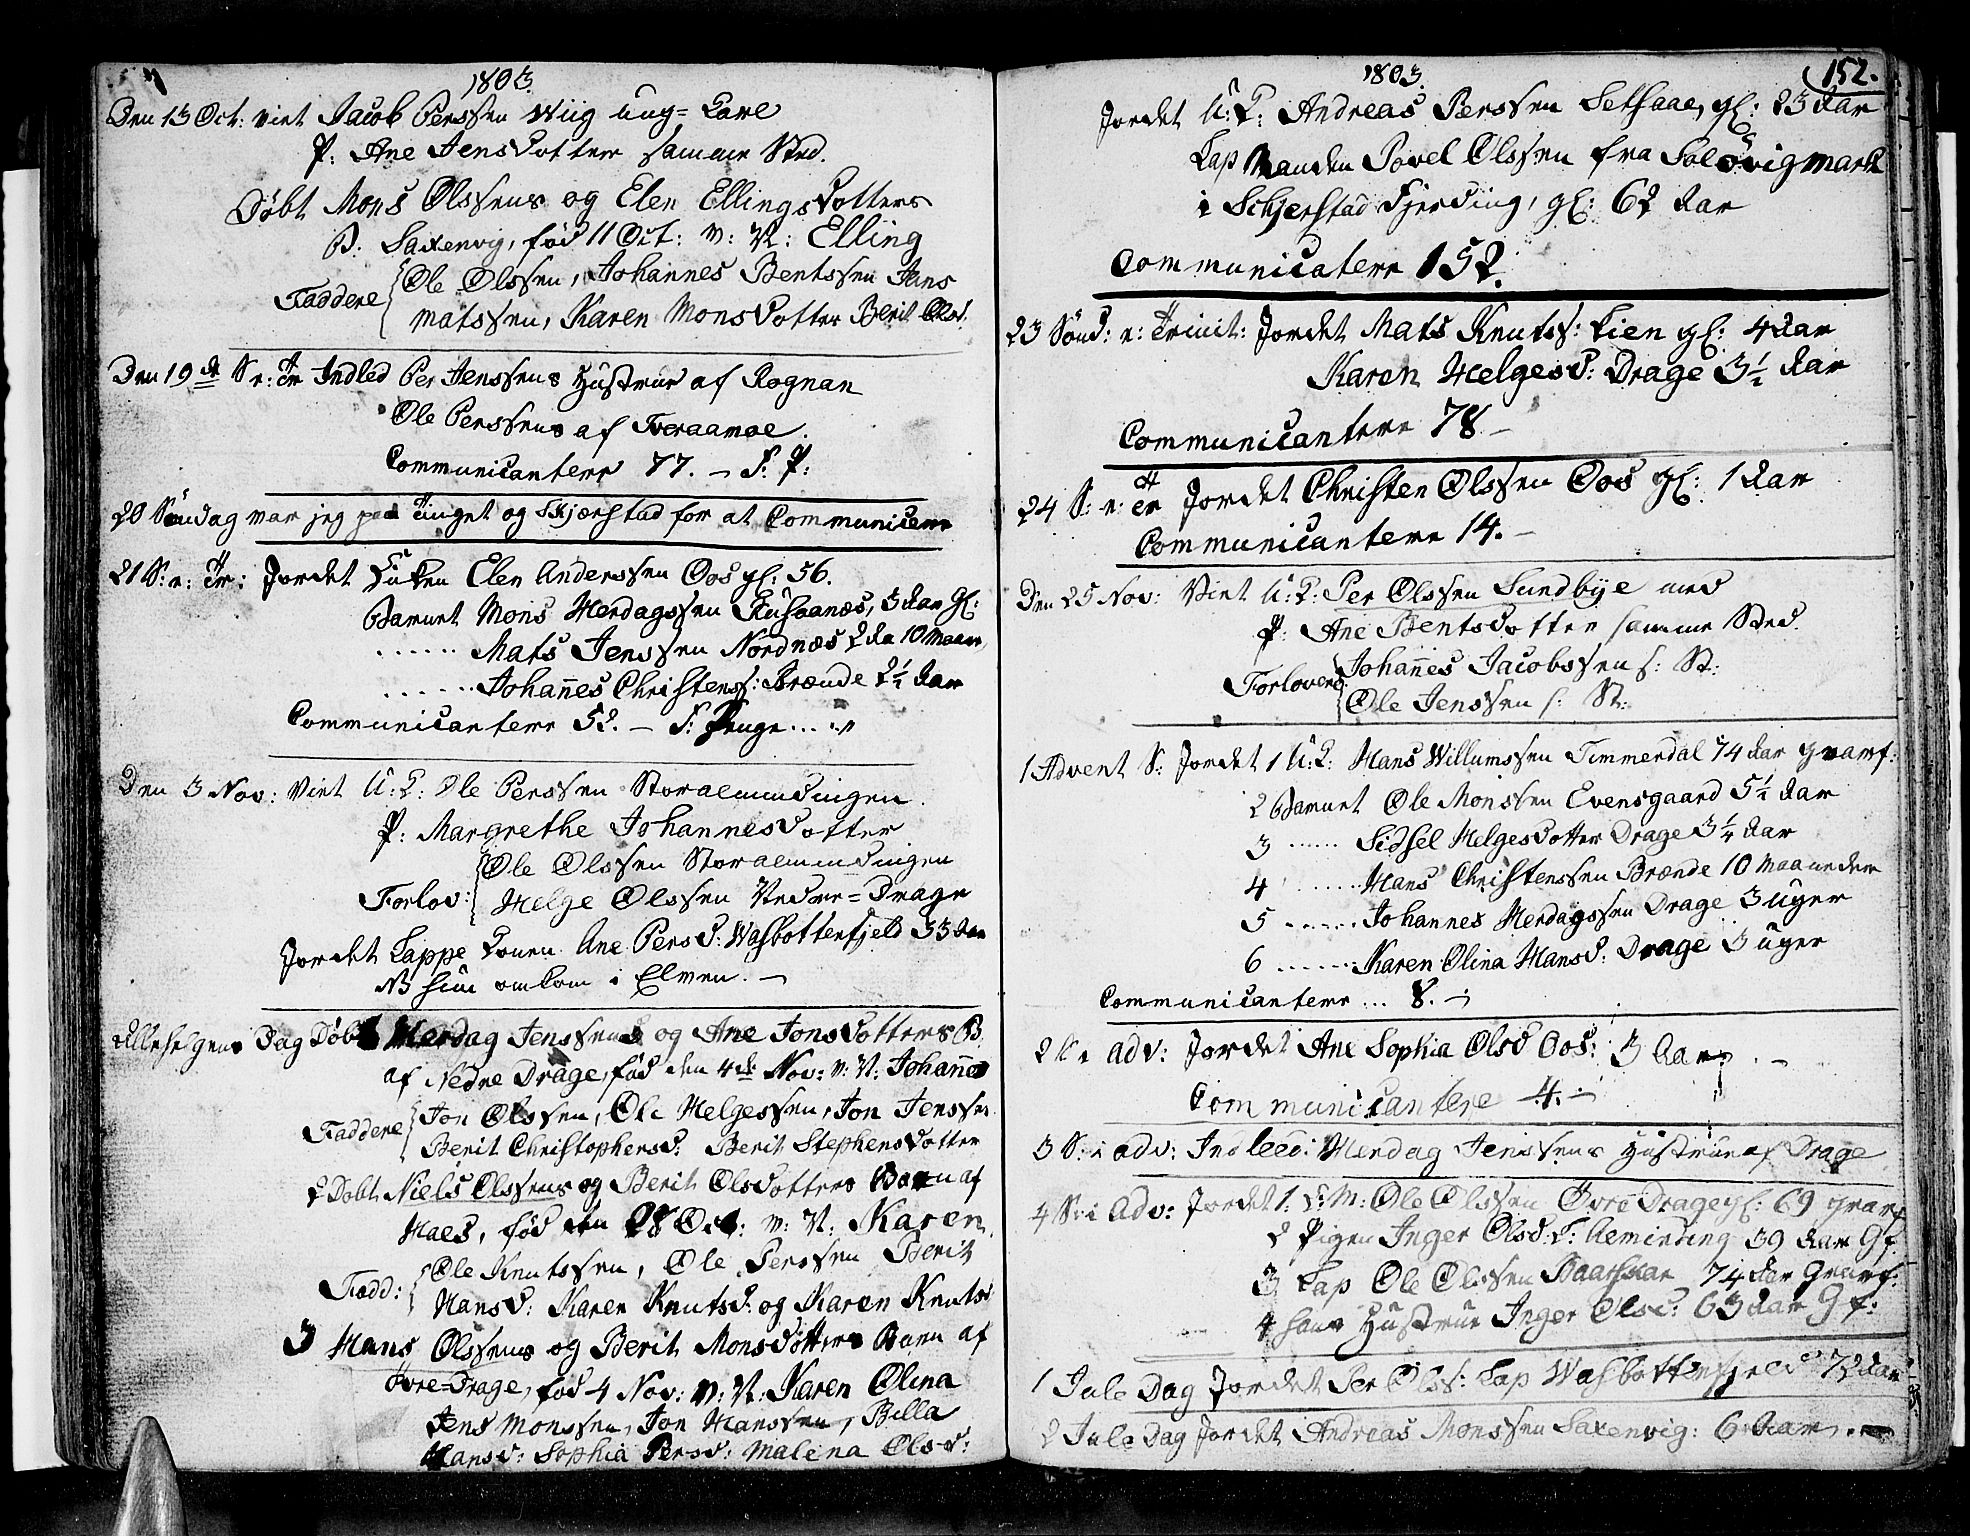 1803.
Den 13 Oct: viet Jacob Perssen Wiig ung= Carl
P: Ane Jensdotter samme Sted.
Døbt Mons Olssens og Elen Ellingsdotters
B: Saxenvig, fød 11 Oct: v: N: Elling
Faddere Ole Olssen, Johannes Bentssen Jens
Matssen, Karen Monsdotter Berit Olsd.
Den 19de S e: Tr Indled Per Jenssens Hustrue af Rognan
Ole Perssens af Tveraamoe.
Communicantere 77. – S: P:
20 Søndag var jeg paa Tinget og Skjerstad for at Communicere
21 S: e: Tr: Jordet Enken Elen Anderssen Oos gl: 56.
Barnet Mons Herdagssen 3 Aar gl:
...... Mats Jenssen Nordnæs 2 Aa 10 Maan
...... Johannes Christenss: Brænde 2½ Aar
Communicantere 52. – S: Penge ....
Den 3 Nov: Viet U: K: Ole Perssen Storalmindingen
P: Margrethe Johannesdotter
Forlov: Ole Olssen Storalmindingen
Helge Olssen Nedre=Drage
Jordet Lappe Konen Ane Persd: Wasbottenfjeld 53 Aar
NB hun omkom i Elven. –
Allehelgens Dag Døbt Herdag Jenssens og Ane Jonsdotters B.
af Nedre Drage, fød den 4de Nov: v: N: Johannes
Faddere Jon Olssen, Ole Helgessen, Jon Jenssen
Berit Christophersd: Berit Stephensdotter
2 Døbt Niels Olssens og Berit Olsdotters Barn af
Naes, fød den 28 Oct: v: N: Karen
Fadd: Ole Knutssen, Ole Perssen Berit
Hansd: Karen Knutsd: og Karen Knutsd
3 Hans Olssens og Berit Monsdotters Barn af
Övre=Drage, fød 4 Nov: v: N: Karen Olina
Jens Monssen, Jon Hanssen, Bella
Hansd: Sophia Persd: Malena Olsd:
1803.
152.
Jordet U: K: Andreas Perssen Setsaae, gl: 23 Aar
Lap Manden Povel Olssen fra Solövigmark
i Schjerstad Fjerding, gl: 62 Aar
Communicatere 152.
23 Sønd: e: Trinit: Jordet Mats Knutss: Lien gl: 4 Aar
Karen Helgesd: Drage 3½ Aar
Communicantere 78 –
24 S: e: Tr Jordet Christen Olssen Oos gl: 1 Aar
Communicantere 14. –
Den 25 Nov: Viet U: K: Per Olssen Sundbye med
P: Ane Bentsdotter samme Sted.
Forlovere Johannes Jacobssen s: St:
Ole Jenssen s: St:
1 Advent S: Jordet 1 U: K: Hans Willumssen Timmerdal 74 Aar gvarf:
2 Barnet Ole Monssen Evensgaard 5½ Aar
3 ...... Sidsel Helgesdotter Drage 3¼ Aar
4 ...... Hans Christenssen Brænde 10 Maaneder
5 ...... Johannes Herdagssen Drage 3 uger
6 ...... Karen Olina Hansd: Drage 3 uger
Communicantere ... 8. –
2 S: i adv: Jordet Ane Sophia Olsd Oos: 3 Aar. –
Communicantere 4. –
3 S: i adv: Indleed: Herdag Jenssens Hustrue af Drage
4 S: i Adv: Jordet 1. M: Ole Olssen Övre Drage gl: 69 gvarf
2 Pigen Inger Olsd: Almending 39 Aar Gf.
3 Lap Ole Olssen 74 Aar Gvarf:
4 hans Hustrue Inger Olsd: 63 Aar Gf:
1 Jule Dag Jordet Per Olss: Lap Wasbottenfjeld 72 Aar
2 Jule Dag Jordet Andreas Monssen Saxenvig: 6 Aar